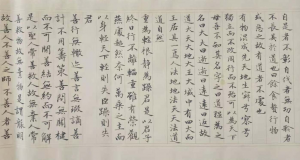 自是者不彰自伐者無功自矜者
不長其於道也曰餘食贅行物
或惡之故有道者不處也
有物混成先天地生寂兮寥兮
獨立而不改周行而不殆可以為天下
母吾不知其名字之曰道強為之
名曰大大曰逝逝曰遠遠曰返故
道大天大地大王亦大域中有四大而
王居其一焉人法地地法天天法道
道法自然
重為輕根靜為躁君是以君子
終日行不離輜重雖有榮觀
燕處超然奈何萬乘之主而
以身輕天下輕則失臣躁則失
君
善行無轍迹善言無瑕讁善
計不用籌策善閉無關楗
而不可開善結無繩約而不可解
是以聖人常善救人故無棄人常
善救物故無棄物是謂襲明
故善人不善人之師不善人